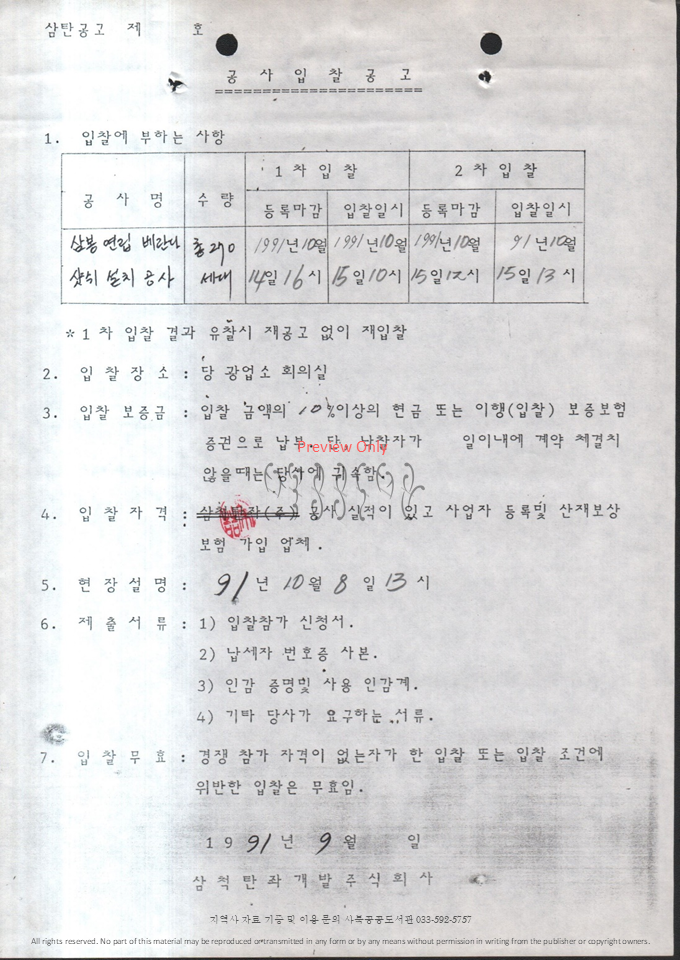 삼탄공고 제 호
공 사 입 찰 공 고
1. 입찰에 부하는 사항
공 사 명 수 량 1 차 입 찰 2 차 입 찰
등록마감 입찰일시 등록마감 입찰일시
삼봉 연립 베란다 총 270 1991년 10월 1991년 10월 1991년 10월 91년 10월
샷시 설치 공사 세대 14일 16시 15일 10시 15일 12시 15일 13시
* 1 차 입찰 결과 유찰시 재공고 없이 재입찰
2. 입 찰 장 소 : 당 광업소 회의실
3. 입찰 보증금 : 입찰 금액의 10%이상의 현금 또는 이행(입찰) 보증보험
증권으로 납부. 단, 낙찰자가 일이내에 계약 체결치
Preview Only
않을때는 당사에 귀속함.
4. 입 찰 자 격 : 삼척탄좌(주) 공사 실적이 있고 사업자 등록및 산재보상
보험 가입 업체.
5. 현 장 설 명 : 91년 10월 8일 13시
6. 제 출 서 류 : 1) 입찰참가 신청서.
2) 납세자 번호증 사본.
3) 인감 증명및 사용 인감계.
4) 기타 당사가 요구하는 서류.
7. 입 찰 무 효 : 경쟁 참가 자격이 없는자가 한 입찰 또는 입찰 조건에
위반한 입찰은 무효임.
1991년 9월 일
삼 척 탄 좌 개 발 주 식 회 사
지역사 자료 기증 및 이용 문의 사북공공도서관 033-592-5757
All rights reserved. No part of this material may be reproduced or transmitted in any form or by any means without permission in writing from the publisher or copyright owners.